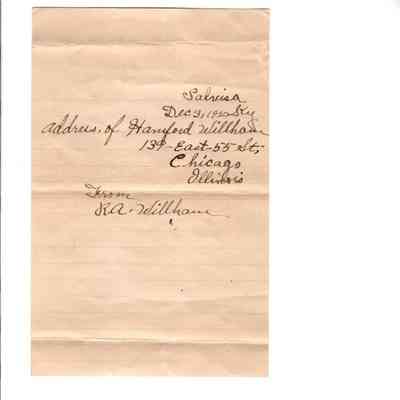 Salvisa
Dec 3, 1920 Ky
address, of Hanford Willham
139-East-55 St,
Chicago
Illinois
From
R.A. Willham